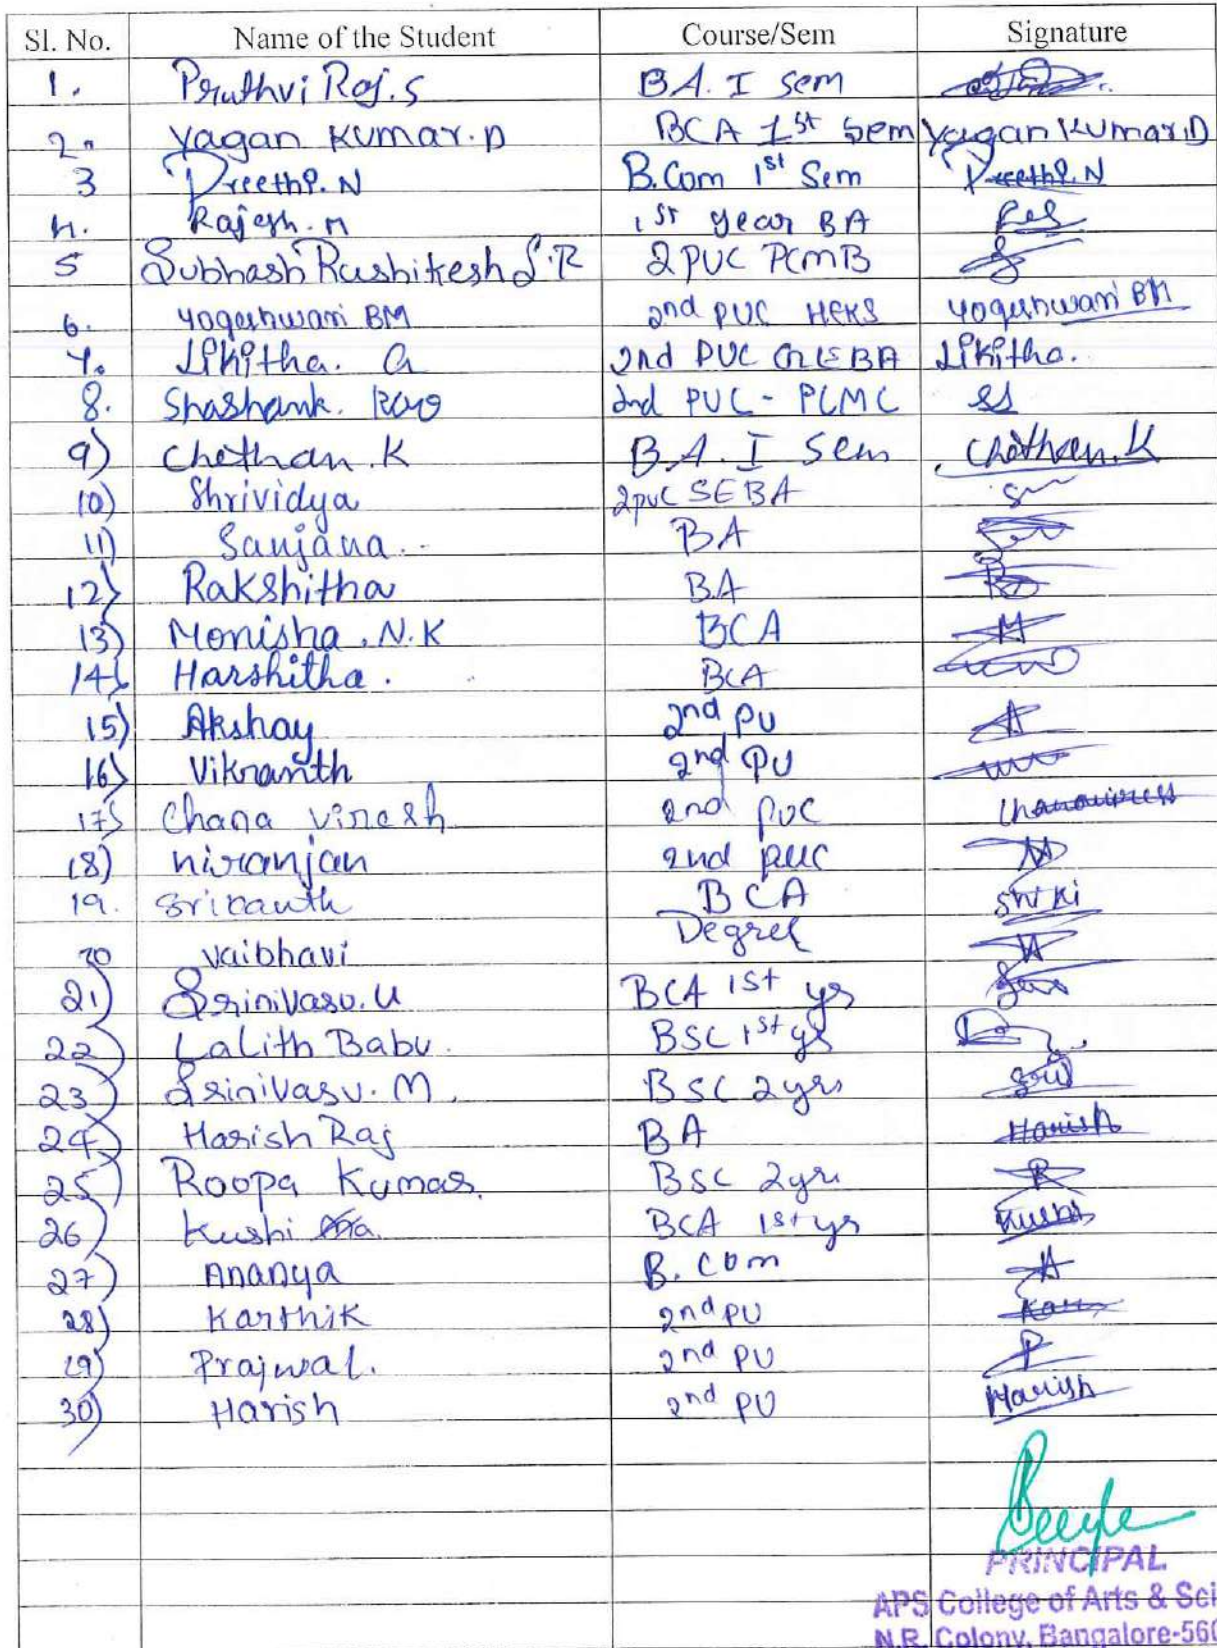 Sl. No. Name of the Student Course/Sem Signature
1. Pruthvi Raj.S B.A. I Sem
2. Yagan Kumar.D BCA 1st Sem Yagan Kumar.D
3 Preethi.N B.Com 1st Sem Preethi.N
4. Rajesh.M 1st year BA
5 Subhash Rushikesh S.R 2 PUC PCMB
6. Yogeshwari BM 2nd PUC HEKS Yogeshwari BM
7. Likitha. G 2nd PUC Likitha.
8. Shashank. Rao 2nd PUC - PCMC SS
9) Chethan.K B.A. I Sem Chethan.K
10) Shrividya 2puc SEBA
11) Sanjana BA
12) Rakshitha BA
13) Monisha.N.K BCA M
14) Harshitha. BCA
15) Akshay 2nd PU A
16) Vikranth 2nd PU
17) Chana viresh 2nd PUC
18) niranjan 2nd puc
19. Srikanth BCA
20 Vaibhavi Degree
21) Srinivasu.U BCA 1st yr
22) Lalith Babu. BSC 1st yr
23) Srinivasu.M. BSC 2yrs
24) Harish Raj BA Harish
25) Roopa Kumar. BSC 2yrs R
26) Kushi BCA 1st yr Kushi
27) Ananya B.Com A
28) Karthik 2nd PU
29) Prajwal. 2nd PU P
30) Harish 2nd PU Harish
PRINCIPAL
APS College of Arts & Sci
N.R. Colony, Bangalore-560